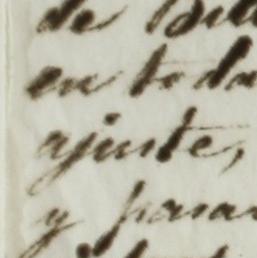 de Bil
en toda
ajuste,
y para